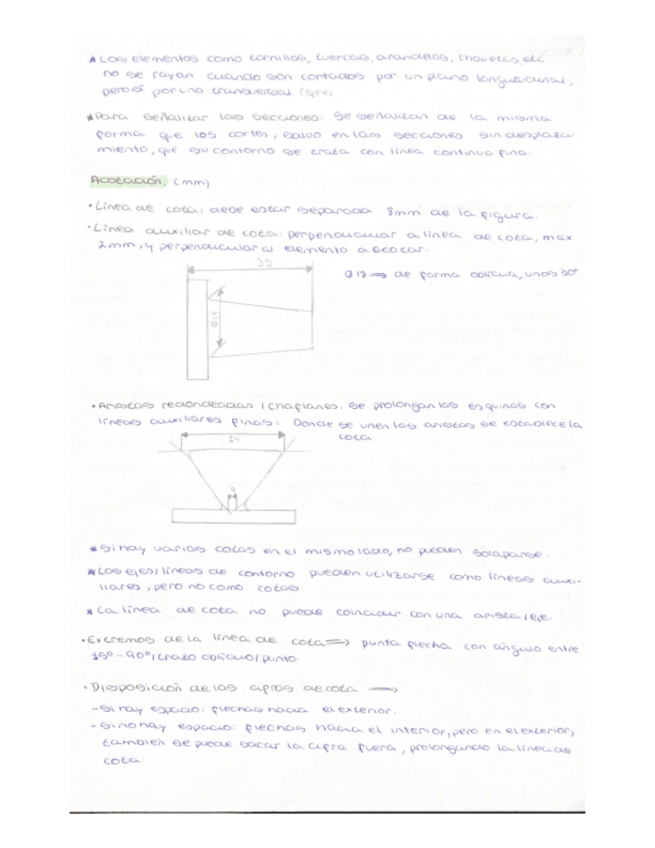 * Los elementos como tornillos, tuercas, arandelas, chavetas, etc
no se rayan cuando son cortados por un plano longitudinal,
pero sí por uno transversal.
* Para señalizar las secciones: se señalizan de la misma
forma que los cortes, salvo en las secciones sin desplaza
miento, que su contorno se traza con línea continua fina.
Acotación: (mm)
· Línea de cota: debe estar separada 8mm de la figura.
· Línea auxiliar de cota: perpendicular a línea de cota, máx
2mm, y perpendicular al elemento a acotar.
⌀18 → de forma oblicua, unos 30º
· Aristas redondeadas / chaflanes: se prolongan las esquinas con
líneas auxiliares finas: Donde se unen las aristas se establece la
cota.
* Si hay varias cotas en el mismo lado, no pueden solaparse.
* Los ejes/líneas de contorno pueden utilizarse como líneas auxi-
liares, pero no como cotas.
* La línea de cota no puede coincidir con una arista/eje.
· Extremos de la línea de cota ⇒ punta flecha con ángulo entre
15º-90º/trazo oblicuo/punto.
· Disposición de las cifras de cota →
- Si hay espacio: flechas hacia el exterior.
- Si no hay espacio: flechas hacia el interior, pero en el exterior,
también se puede sacar la cifra fuera, prolongando la línea de
cota.